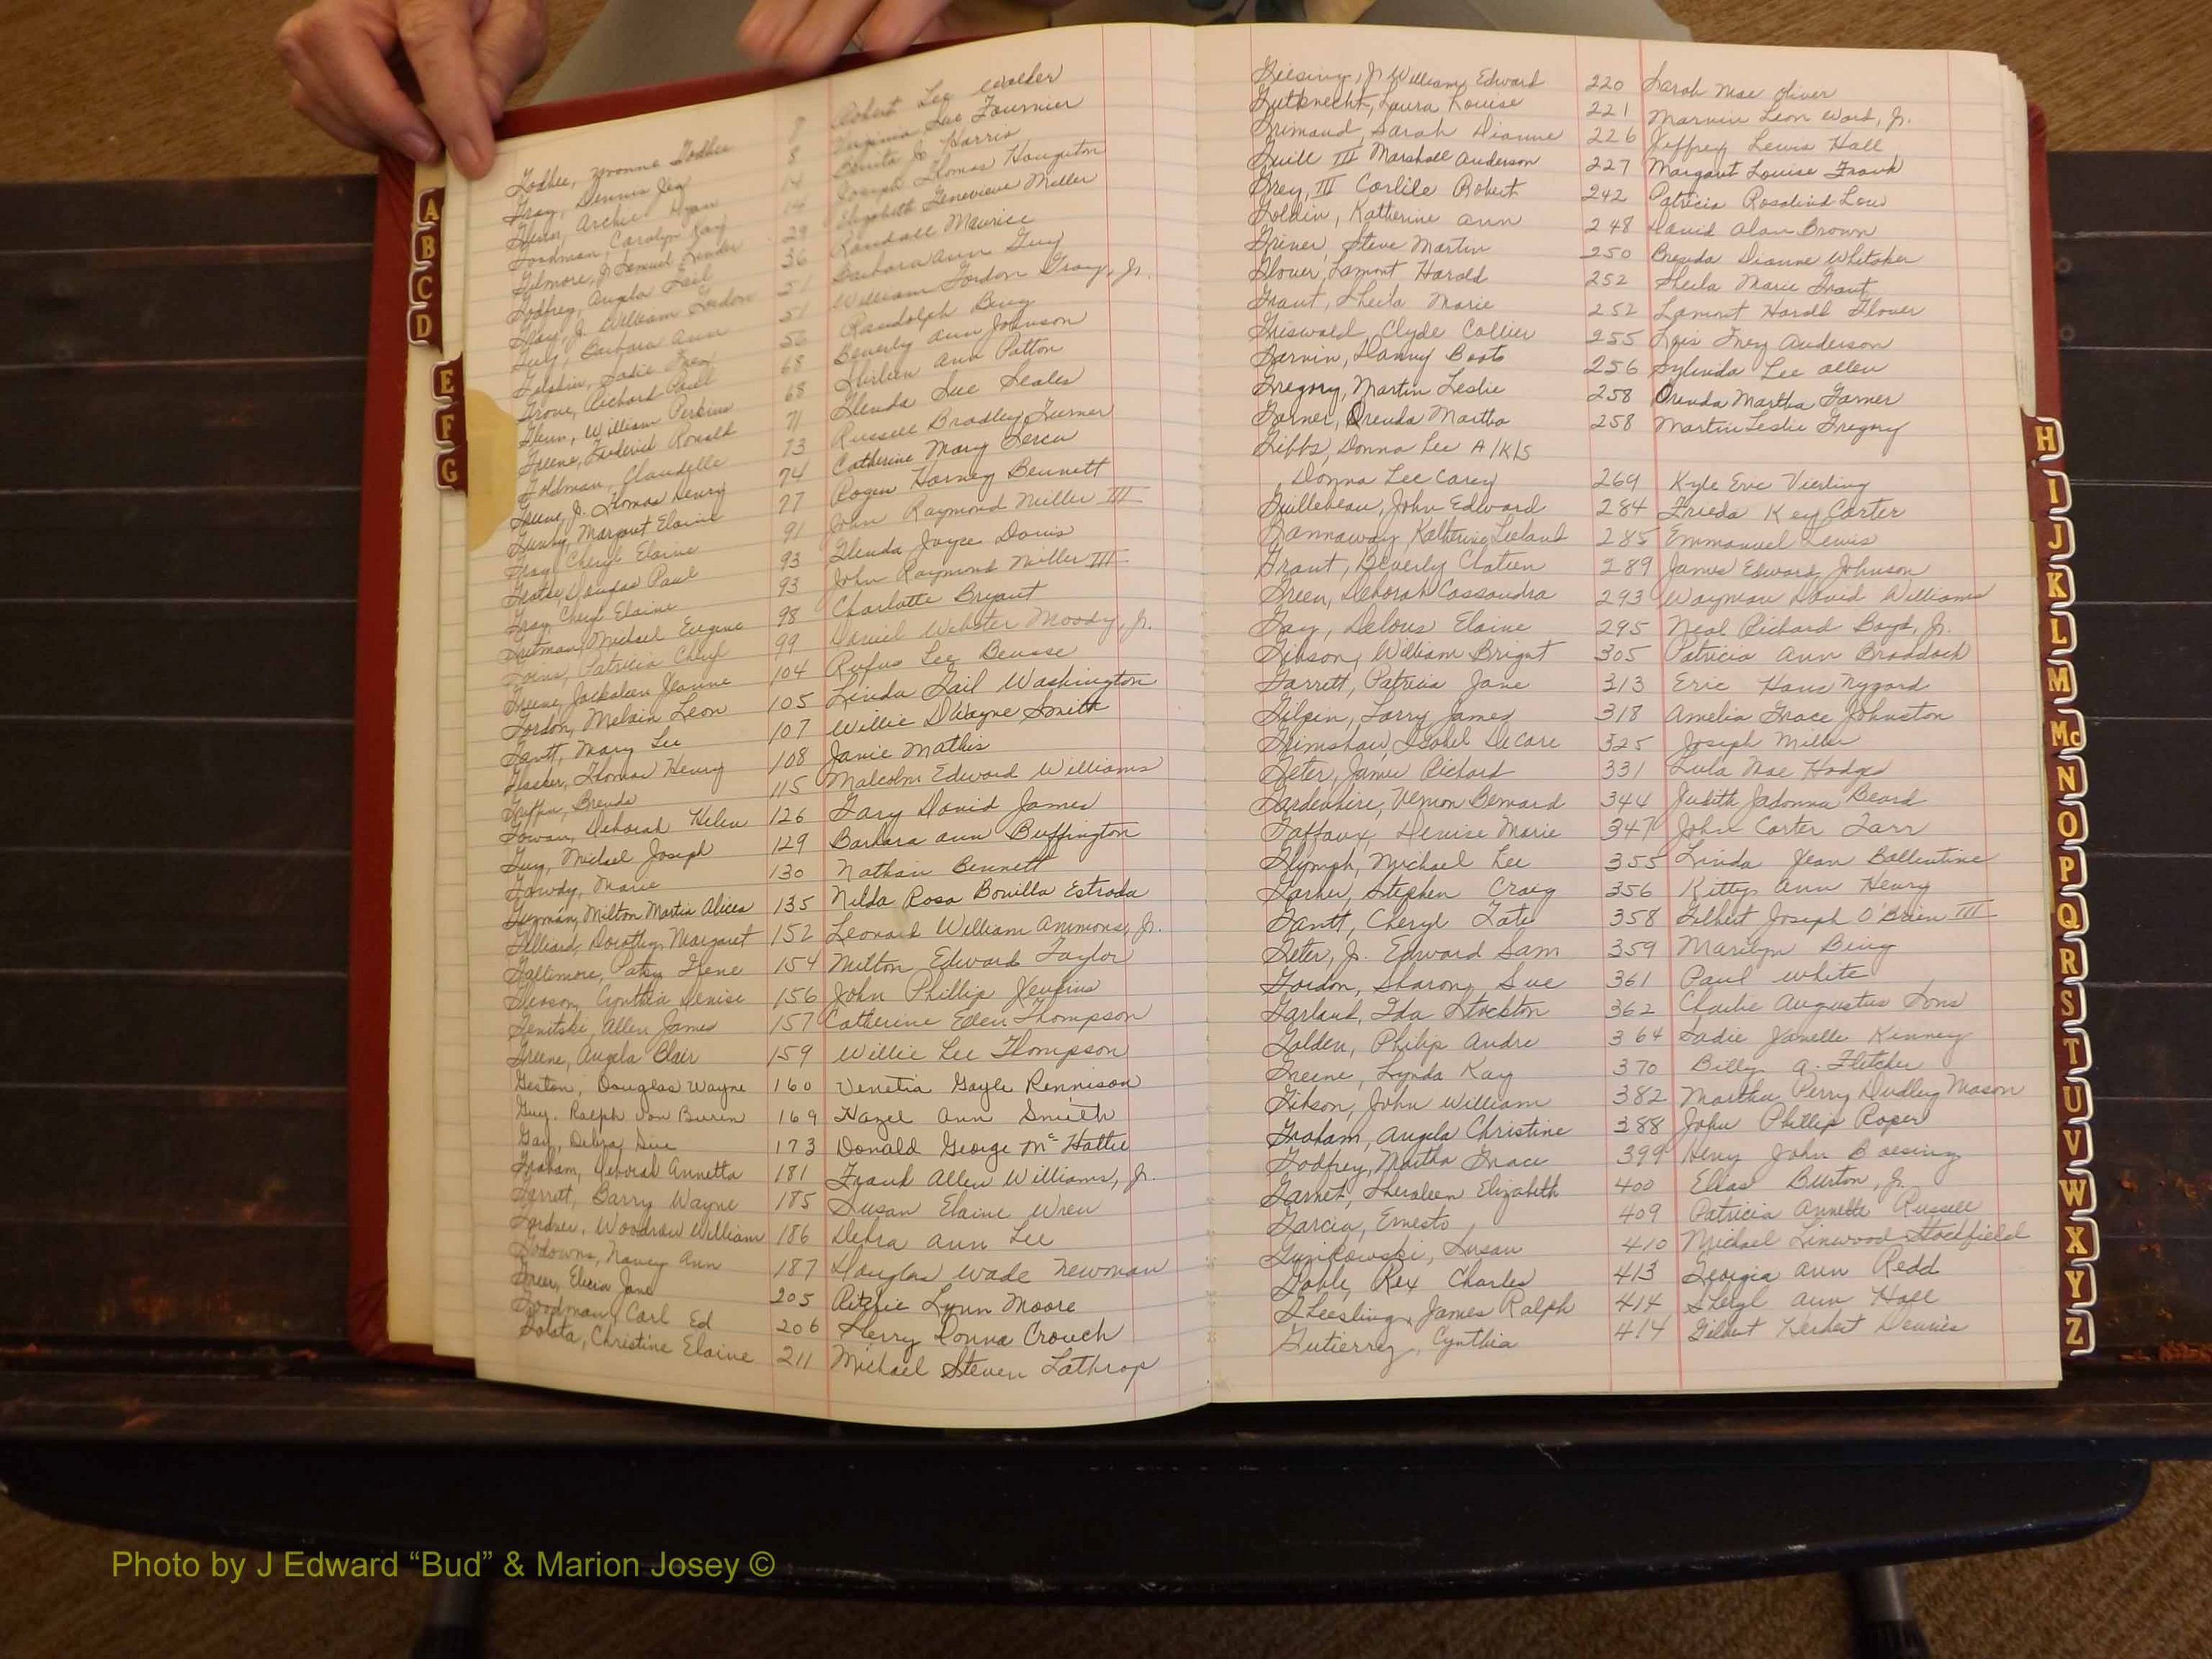 A
B
C
D
E
F
G
Godbee, Yvonne Godbee 8 Robert Lee Walker
Gray, Dennis 8 Virginia Sue Fournier
Glenn, Archie 14 Jr Harris
Goodman, Carolyn Kay 14 Joseph Thomas Houghton
Gilmore, Jr Samuel Lander 29 Elizabeth Genevieve Miller
Godfrey, Angela Gail 36 Randall Maurice
Gray, Jr. William Gordon 51 Barbara Ann Guy
Guy, Barbara Ann 51 William Gordon Gray, Jr.
Gilphin, Sadie 56 Randolph Bing
Grove, Richard Paul 68 Beverly Ann Johnson
Glenn, William Perkins 68 Ann Patton
Greene, Frederick Ronald 71 Glenda Sue Seales
Goldman, Claudelle 73 Russell Bradley Turner
Greene, Jr. Thomas Henry 74 Catherine Mary
Gundy, Margaret Elaine 77 Roger Harvey Bennett
Gray, Cheryl Elaine 91 John Raymond Miller III
Douglas Paul 93 Glenda Joyce Davis
Gray, Cheryl Elaine 93 John Raymond Miller III
Michael Eugene 98 Charlotte Bryant
Patricia Cheryl 99 Daniel Webster Moody, Jr.
Greene, Jackaleen Jeanne 104 Rufus Lee Beusse
Gordon, Melvin Leon 105 Linda Gail Washington
Gantt, Mary Lee 107 Willie DWayne Smith
Thomas Henry 108 Janie Mathis
Griffin, Brenda 115 Malcolm Edward Williams
Gowan, Deborah Helen 126 Gary David James
Guy, Michael Joseph 129 Barbara Ann Buffington
Gowdy, Marie 130 Nathan Bennett
Guzmán, Milton Martin Alicea 135 Nilda Rosa Bonilla Estrada
Gilliard, Dorothy Margaret 152 Leonard William Ammons, Jr.
Galtimore, Patsy Irene 154 Milton Edward Taylor
Gleason, Cynthia Denise 156 John Phillip Jenkins
Genitski, Allen James 157 Catherine Eden Thompson
Greene, Angela Blair 159 Willie Lee Thompson
Geston, Douglas Wayne 160 Venetia Gayle Rennison
Guy, Ralph Van Buren 169 Hazel Ann Smith
Gay, Debra Sue 173 Donald George McHattie
Graham, Deborah Annetta 181 Frank Allen Williams, Jr.
Garrett, Barry Wayne 185 Susan Elaine Wren
Gardner, Woodrow William 186 Debra Ann Lee
Godowns, Nancy Ann 187 Douglas Wade Newman
Greer, Elecia Jane 205 Ritchie Lynn Moore
Goodman, Carl Ed 206 Sherry Donna Crouch
Golata, Christine Elaine 211 Michael Steven Lathrop
Giesing, Jr William Edward 220 Sarah Mae Oliver
Gutknecht, Laura Louise 221 Marvin Leon Ward, Jr.
Grimaud, Sarah Dianne 226 Jeffrey Lewis Hall
Guill III Marshall Anderson 227 Margaret Louise Frank
Grey, III Carlile Robert 242 Patricia Rosalind Low
Goldin, Katherine Ann 248 David Alan Brown
Griner, Steve Martin 250 Brenda Dianne Whitaker
Glover, Lamont Harold 252 Sheila Marie Grant
Grant, Sheila Marie 252 Lamont Harold Glover
Griswald, Clyde Collier 255 Lois Frey Anderson
Garvin, Danny Boots 256 Sylinda Lee Allen
Gregory, Martin Leslie 258 Orenda Martha Garner
Garner, Orenda Martha 258 Martin Leslie Gregory
Gibbs, Donna Lee A/K/S
Donna Lee Carey 269 Kyle Eric Vierling
Guillebeau, John Edward 284 Frieda Key Carter
Gannaway, Katherine Leeland 285 Emmanuel Lewis
Grant, Beverly Chateen 289 James Edward Johnson
Green, Deborah Cassandra 293 Wayman David Williams
Gay, Delous Elaine 295 Neal Richard Boyd, Jr.
Gibson, William Bright 305 Patricia Ann Braddock
Garrett, Patricia Jane 313 Eric Hans Nygard
Gilpin, Larry James 318 Amelia Grace Johnston
Grimshaw, Isabel DeCare 325 Joseph Miller
Geter, Jamie Richard 331 Lula Mae Hodges
Gardenhire, Vernon Bernard 344 Judith Jadonna Beard
Gaffaux, Denise Marie 347 John Carter Tarr
Glymph, Michael Lee 355 Linda Jean Ballentine
Garher, Stephen Craig 356 Kitty Ann Henry
Gantt, Cheryl Tate 358 Gilbert Joseph O'Brien III
Geter, Jr. Edward Sam 359 Marilyn Bing
Gordon, Sharon Sue 361 Paul White
Garland, Ida Stockton 362 Charlie Augustus Sons
Golden, Philip Andre 364 Sadie Janelle Kinney
Greene, Lynda Kay 370 Billy A. Fletcher
Gibson, John William 382 Martha Perry Dudley Mason
Graham, Angela Christine 388 John Phillip Roper
Godfrey, Martha Grace 399 Henry John Boesing
Garnet, Sheraleen Elizabeth 400 Elias Burton, Jr.
Garcia, Ernesto 409 Patricia Annette Russell
Guzikowski, Susan 410 Michael Linwood Stockfield
Goble, Rex Charles 413 Georgia Ann Redd
Gheesling, James Ralph 414 Sheryl Ann Hall
Gutierrez, Cynthia 414 Gilbert Herbert Dennis
H
I
J
K
L
M
Mc
N
O
P
Q
R
S
T
U
V
W
X
Y
Z
Photo by J Edward “Bud” & Marion Josey ©